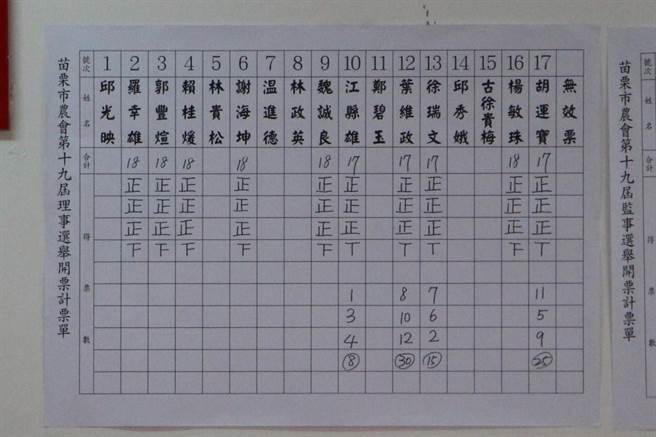 苗栗市農會第十九屆理事選舉開票計票單
號次 1 2 3 4 5 6 7 8 9 10 11 12 13 14 15 16 17
姓名 邱光映 羅幸雄 郭豐煊 賴桂煖 林貴松 謝海坤 温進德 林政英 魏誠良 江縣雄 鄭碧玉 葉維政 徐瑞文 邱秀娥 古徐貴梅 楊敏珠 胡運寶 無效票
合計 18 18 18 18 18 17 17 17 18 17
得票數
正 正 正 正 正 正 正 正 正 正
正 正 正 正 正 正 正 正 正 正
正 正 正 正 正 正 正 正 正 正
下 下 下 下 下 丅 丅 丅 下 丅
1 8 7 11
3 10 6 5
4 12 2 9
8 30 15 25
苗栗市農會第十九屆監事選舉開票計票單
號次
姓名
合計
得票數